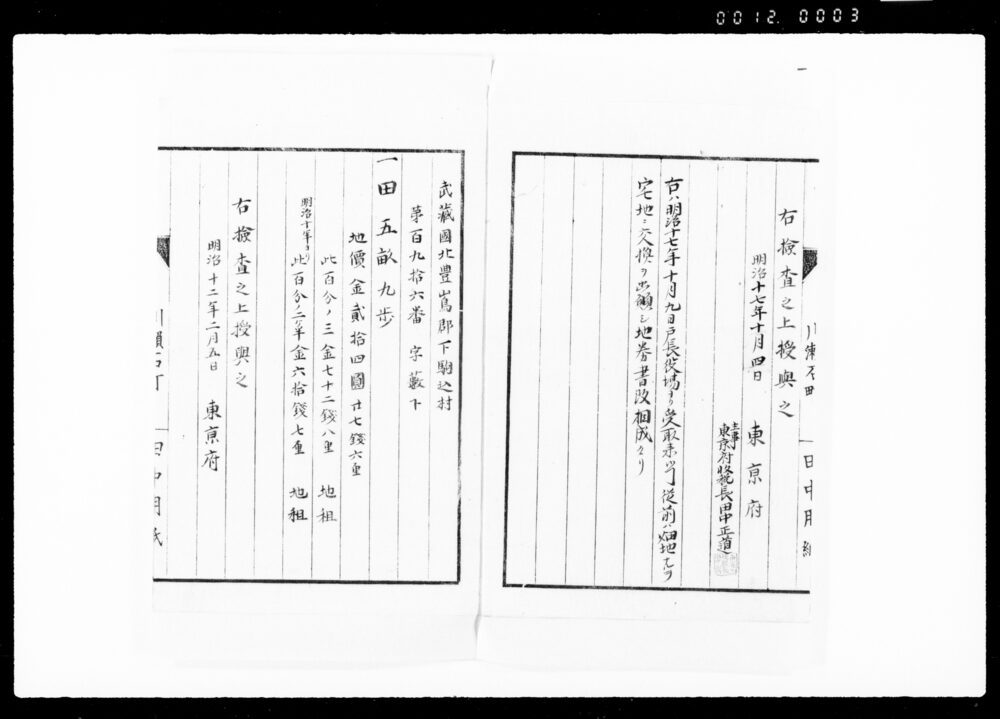 0012. 0003
一
右檢查之上授與之
明治十七年十月四日 東京府
主事
東京府收税長田中正道
右ハ明治十七年十月九日戸長役場ヨリ受取来ル 従前ハ畑地
宅地ニ交換ヲ出願シ地券書改相成タリ
武藏國北豊嶌郡下駒込村
第百九拾六番 字藪下
一田五畝九歩
地價金貳拾四圓廿七錢六厘
此百分ノ三金七十二錢八厘 地租
明治十年ヨリ
此百分ノ二ケ半金六拾錢七厘 地租
右檢查之上授與之
明治十二年二月五日 東京府